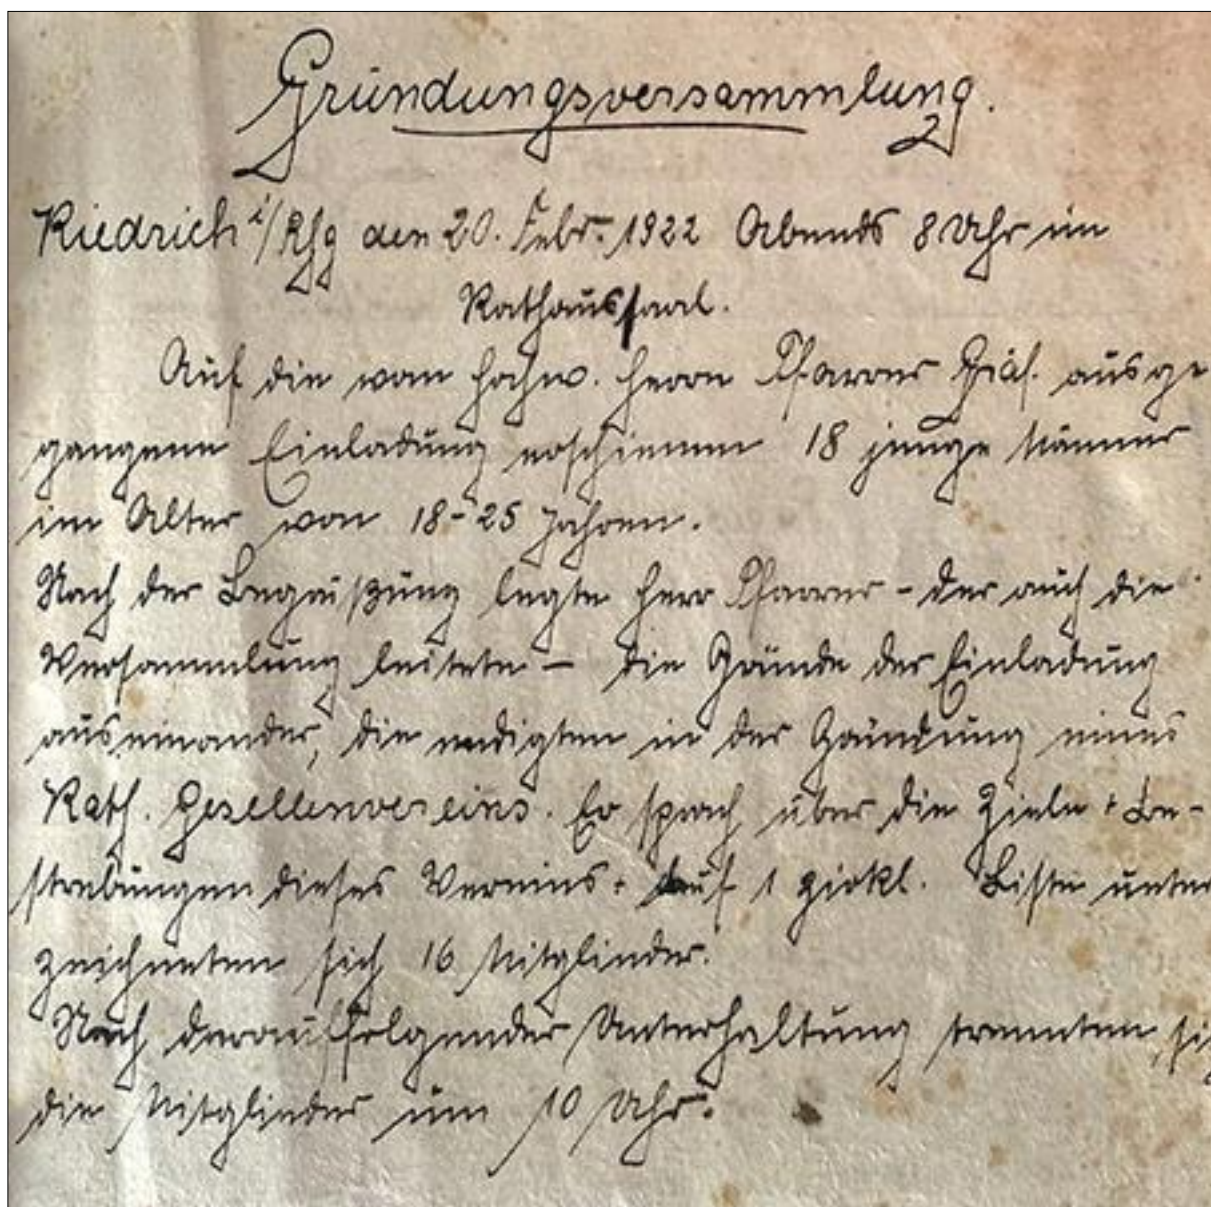 Gründungsversammlung.
Kiedrich i/Rhg den 20. Febr. 1922 Abends 8 Uhr im
Rathaussaal.
Auf die vom hochw. Herrn Pfarrer Gräf. ausge
gangene Einladung erschienen 18 junge Männer
im Alter von 18-25 Jahren.
Nach der Begrüßung legte Herr Pfarrer - der auch die
Versammlung leitete - die Gründe der Einladung
auseinander, die endigten in der Gründung eines
Kath. Gesellenvereins. Er sprach über die Ziele + Be-
strebungen dieses Vereins. Auf 1 zirkl. Liste unter
zeichneten sich 16 Mitglieder.
Nach darauffolgender Unterhaltung trennten sich
die Mitglieder um 10 Uhr.